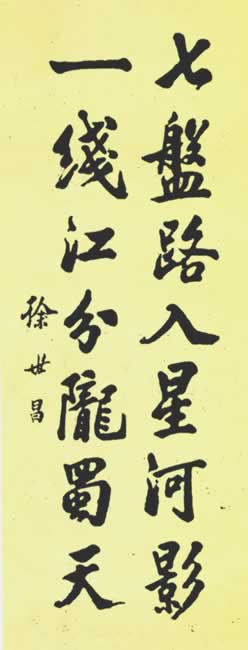 七盤路入星河影
一綫江分隴蜀天
徐世昌